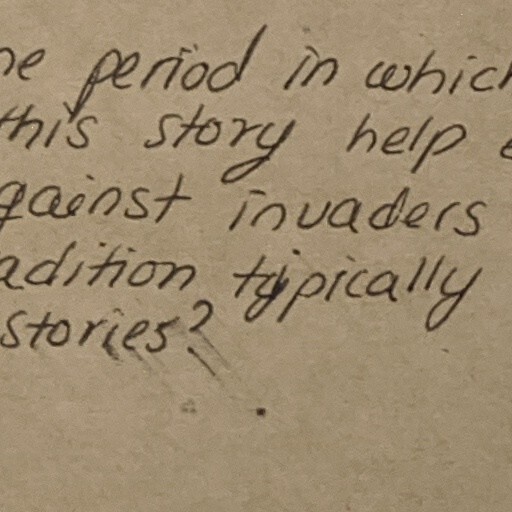 he period in which
this story help
against invaders
adition typically
stories?